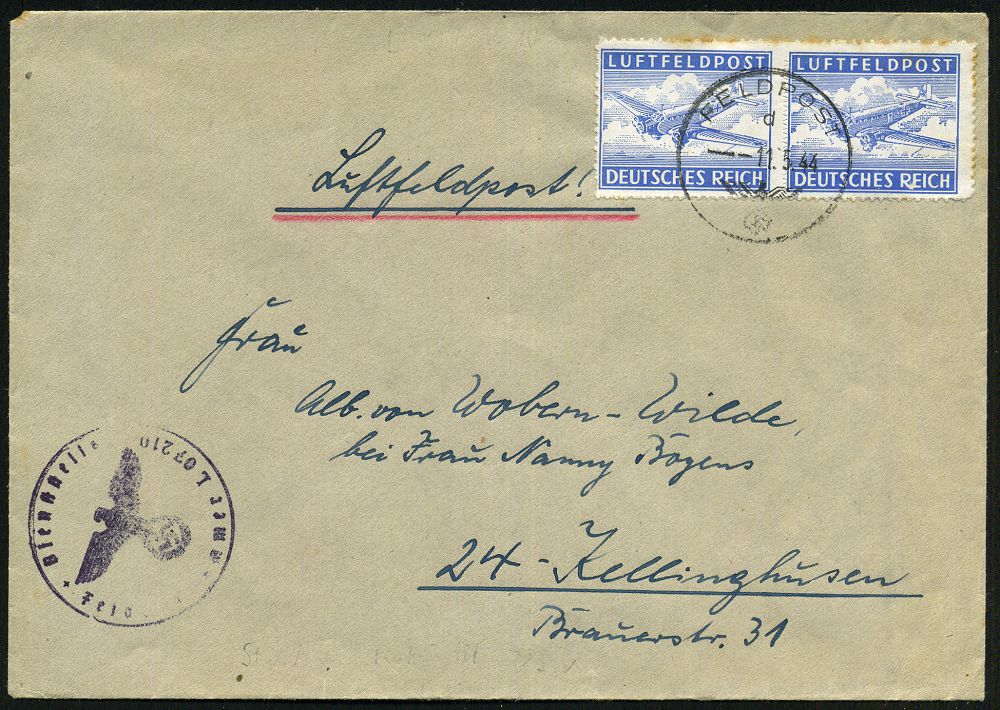 LUFTFELDPOST
DEUTSCHES REICH
LUFTFELDPOST
DEUTSCHES REICH
FELDPOST
d
11.5.44
Luftfeldpost!
Frau
Alb. von Wobern-Wilde,
bei Frau Nanny Bögens
24-Kellinghusen
Brauerstr. 31
Dienststelle